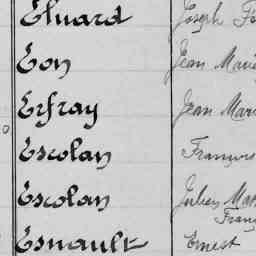 Eluard Joseph
Eon Jean Marie
Erfray Jean Mari
Escolan François
Escolan Julien Mat
Franç
Esnault Ernest